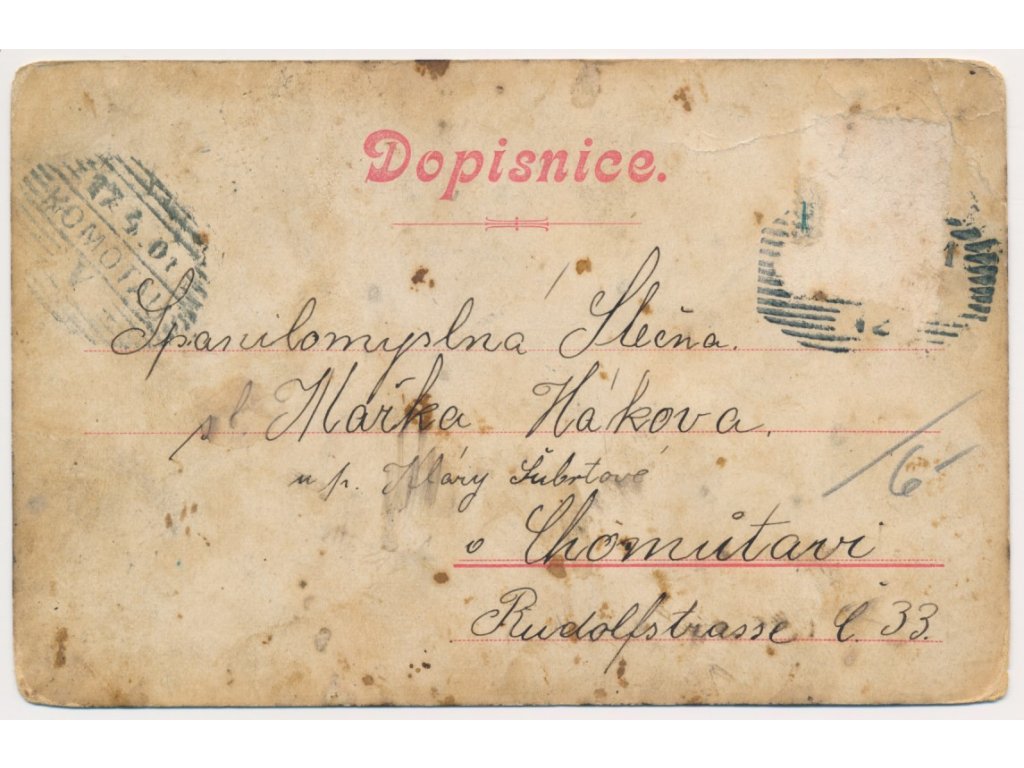 Dopisnice.
17.4.01
KOMOTAU
12
1
Spanilomyslná Slečna.
sl. Mařka Hákova.
u p. Kláry Šubrtové
v Chomůtavi
/6
Rudolfstrasse č. 33.